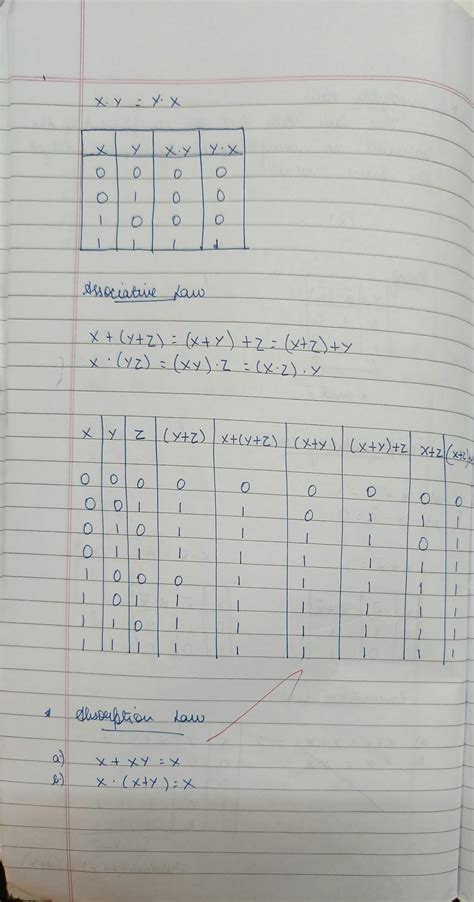 X·Y = Y·X
X Y X·Y Y·X
0 0 0 0
0 1 0 0
1 0 0 0
1 1 1 1
Associative Law
X + (Y+Z) = (X+Y) + Z = (X+Z) + Y
X · (YZ) = (XY) · Z = (X·Z) · Y
X Y Z (Y+Z) X+(Y+Z) (X+Y) (X+Y)+Z X+Z (X+Z)+Y
0 0 0 0 0 0 0 0 0
0 0 1 1 1 0 1 1 1
0 1 0 1 1 1 1 0 1
0 1 1 1 1 1 1 1 1
1 0 0 0 1 1 1 1 1
1 0 1 1 1 1 1 1 1
1 1 0 1 1 1 1 1 1
1 1 1 1 1 1 1 1 1
* Absorption Law
a) X + XY = X
b) X · (X+Y) = X